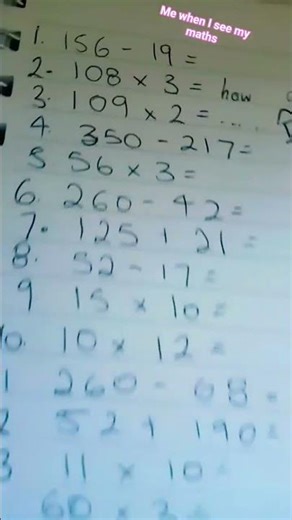 Me when I see my
maths
1. 156 - 19 =
2- 108 × 3 = how
3. 109 × 2 = ...
4. 350 - 217=
5 56 × 3 =
6. 260 - 42=
7. 125 + 21 =
8. 52 - 17 =
9 15 × 10 =
10. 10 × 12 =
1 260 - 68 =
2 52 + 190 =
3 11 × 10 =
60 × 3 =